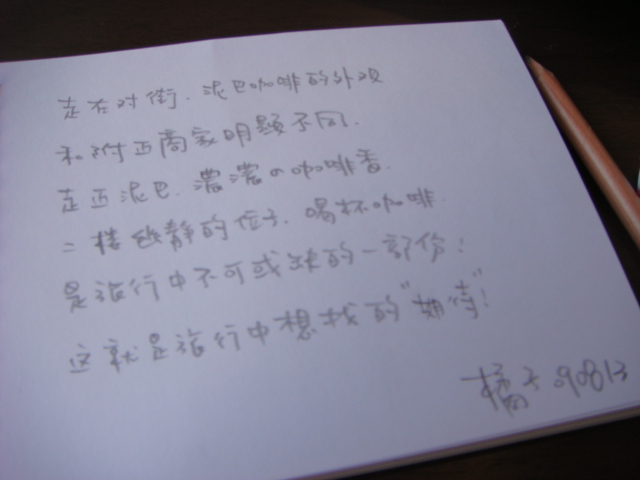 走在对街. 泥巴咖啡的外观
和附近商家明顯不同.
走近泥巴. 濃濃の咖啡香.
二楼幽静的位子. 喝杯咖啡.
是旅行中不可或缺的一部份!
这就是旅行中想找的"期待"!
橘子 090813